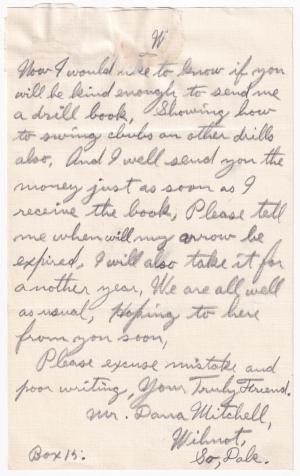 W
Now I would like to know if you
will be kind enough to send me
a drill book, Showing how
to swing clubs an other drills
also, And I well send you the
money just as soon as I
receive the book, Please tell
me when will my arrow be
expired, I will also take it for
another year, We are all well
as usual, Hoping to here
from you soon,
Please excuse mistake and
poor writing, Your Truly Friend.
Mr. Dana Mitchell,
Wilmot,
Box 15. So, Dak.